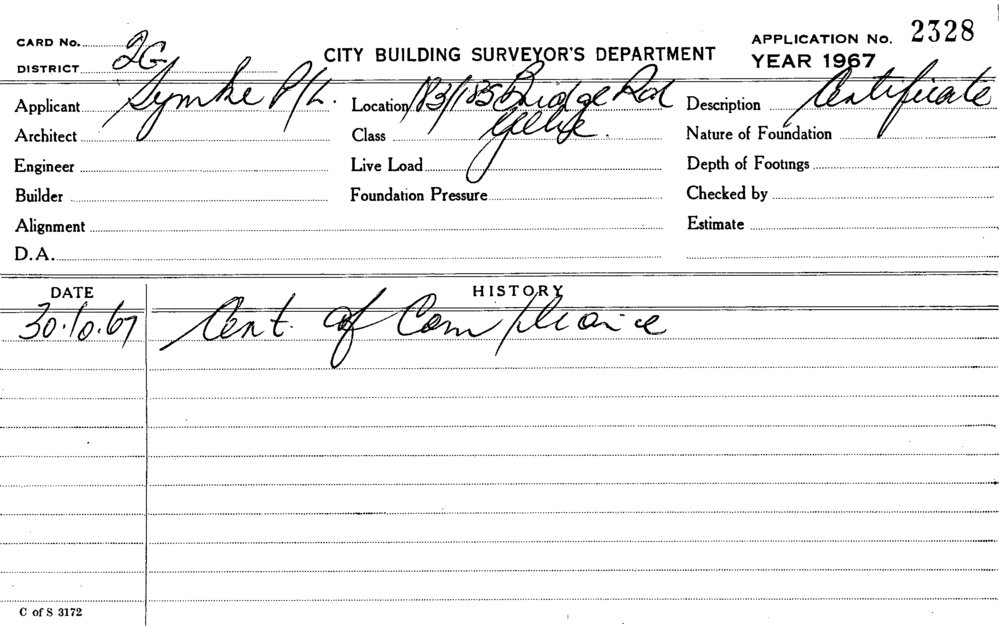 CARD No.
DISTRICT 2G
CITY BUILDING SURVEYOR'S DEPARTMENT
APPLICATION No. 2328
YEAR 1967
Applicant Symke P/L. Location 183/185 Bridge Rd Description Certificate
Architect Class Glebe. Nature of Foundation
Engineer Live Load Depth of Footings
Builder Foundation Pressure Checked by
Alignment Estimate
D.A.
DATE HISTORY
30.10.67 Cert. of Compliance
C of S 3172